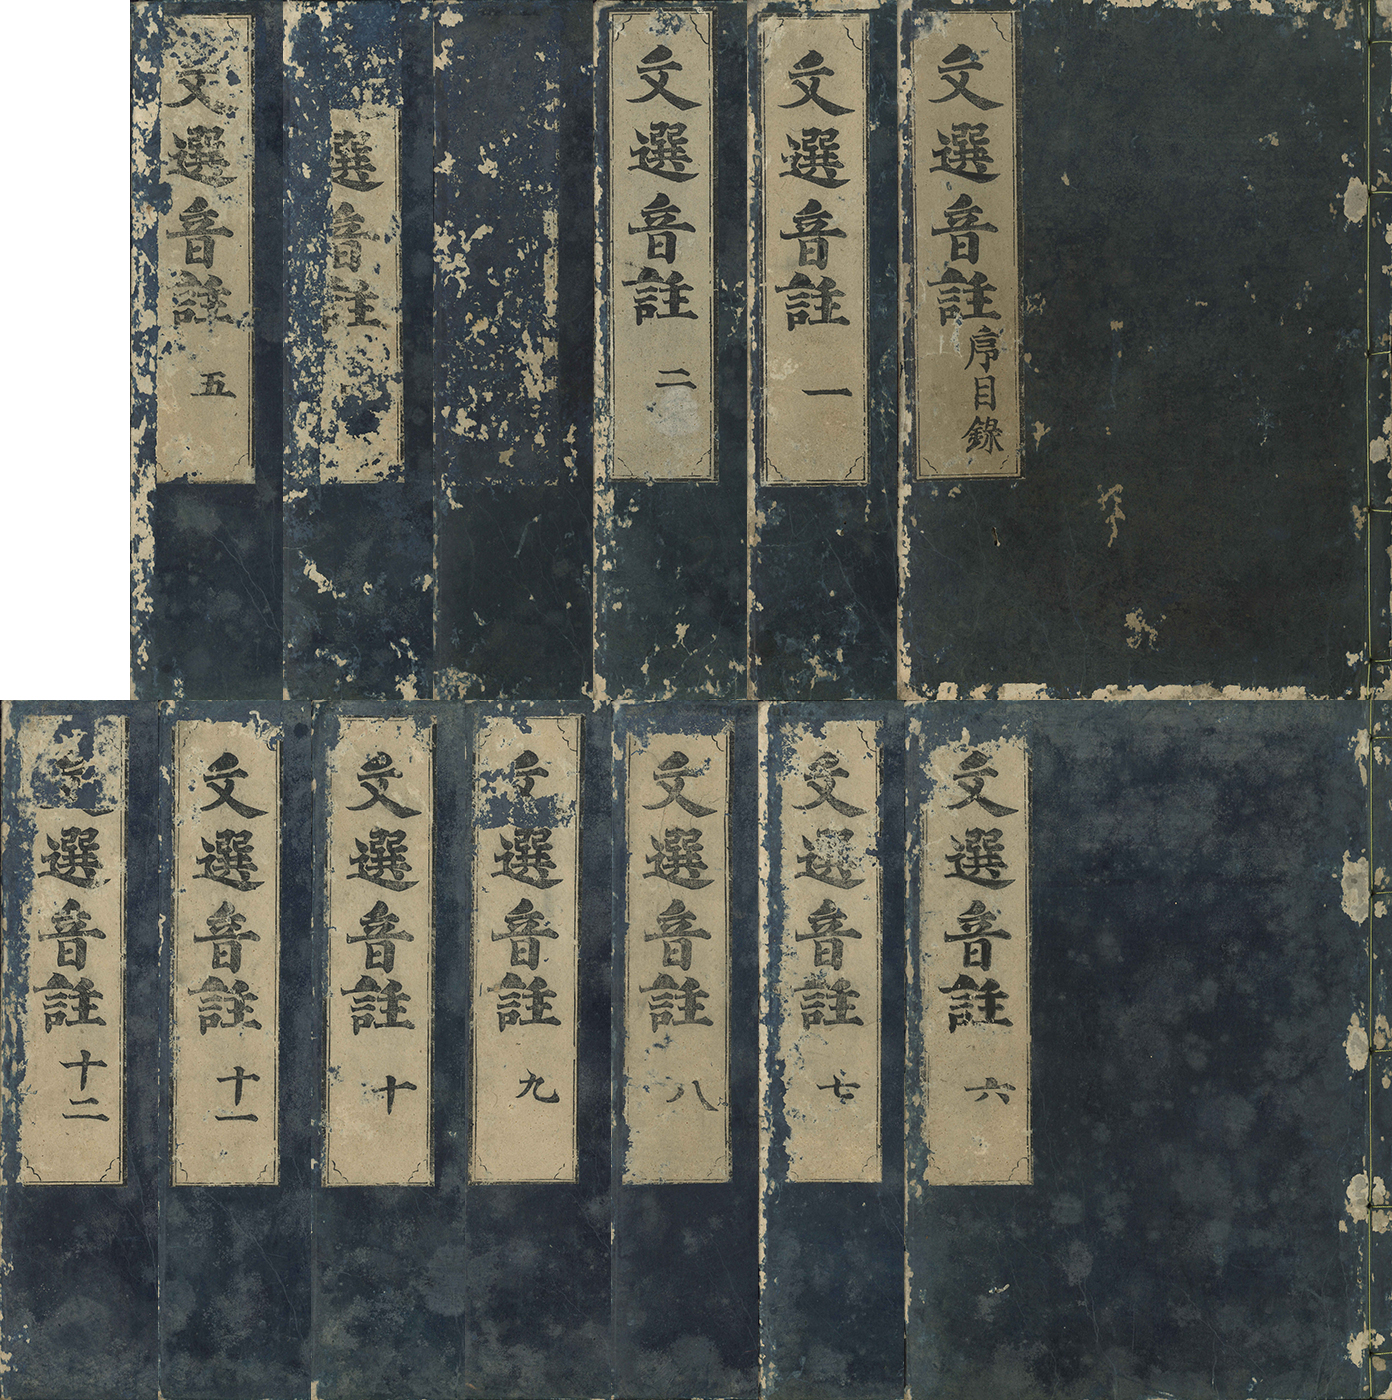 文選音註序目錄
文選音註一
文選音註二
選音註
文選音註五
文選音註六
文選音註七
文選音註八
文選音註九
文選音註十
文選音註十一
文選音註十二